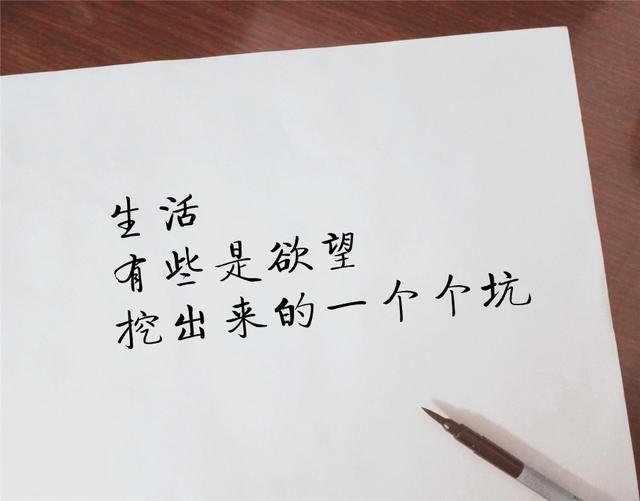 生活
有些是欲望
挖出来的一个个坑